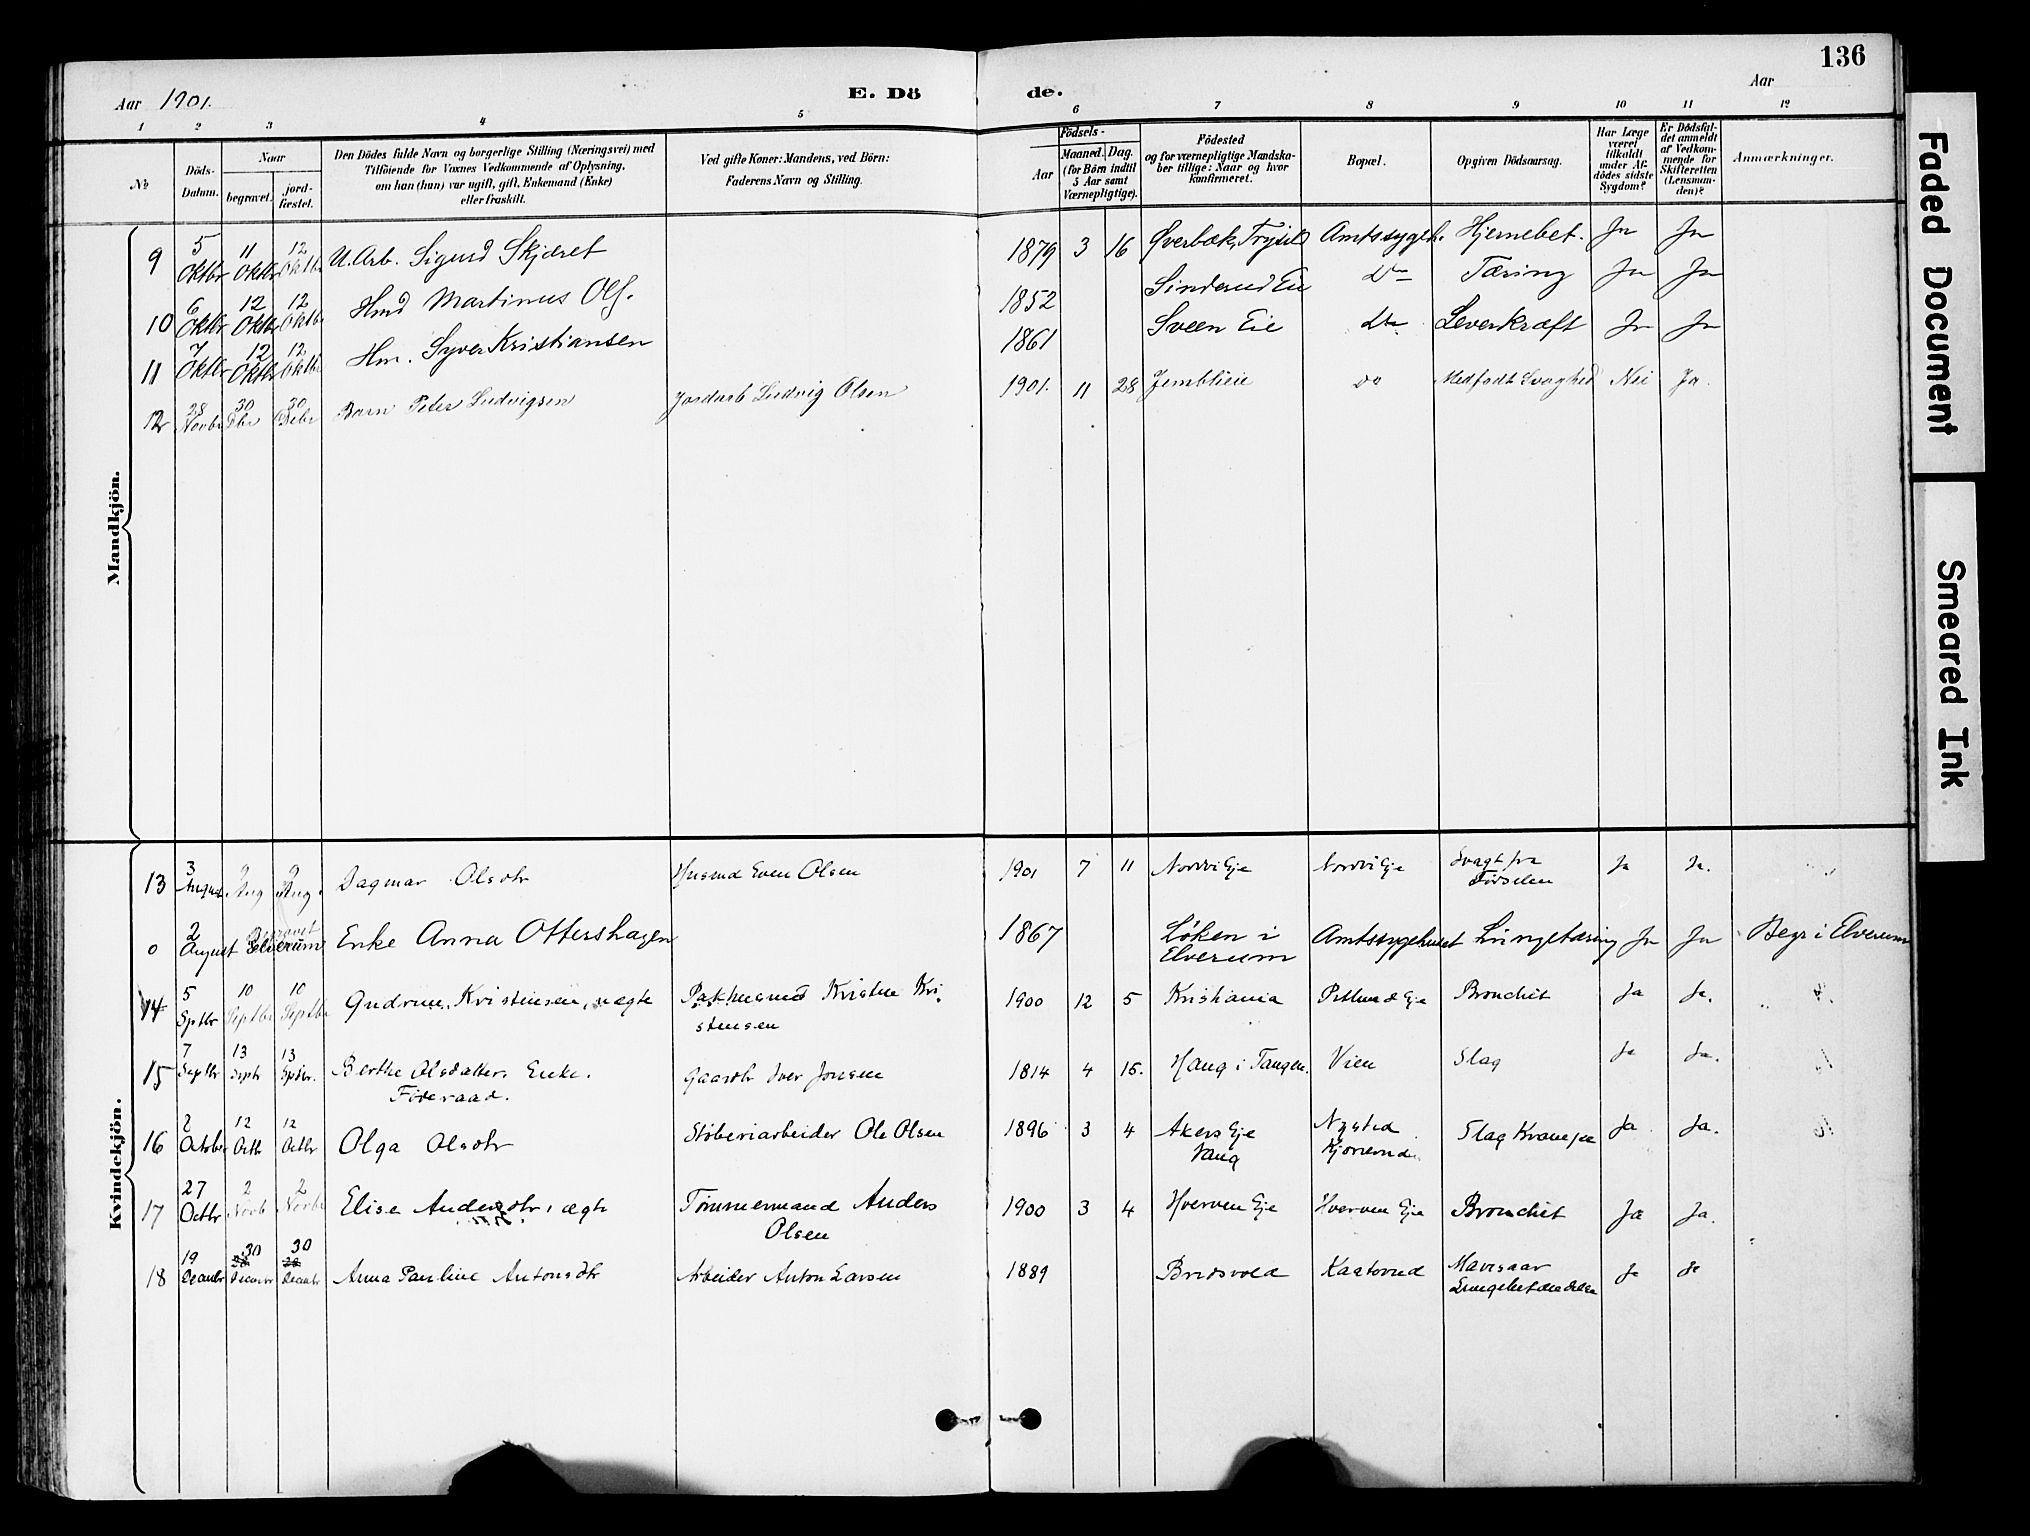 136
Aar 1901.
E. Dö
de.
Aar
1 2 3 4 5 6 7 8 9 10 11 12
No
Döds-Datum.
Naar
begravet.
jord-fæstet.
Den Dödes fulde Navn og borgerlige Stilling (Næringsvei) med
Tilföiende for Voxnes Vedkommende af Oplysning,
om han (hun) var ugift, gift, Enkemand (Enke)
eller fraskilt.
Ved gifte Koner: Mandens, ved Börn:
Faderens Navn og Stilling.
Födsels-
Aar
Maaned. Dag.
(for Börn indtil
5 Aar samt
Værnepligtige).
Födested
og for værnepligtige Mandska-
ber tillige: Naar og hvor
konfirmeret.
Bopæl.
Opgiven Dödsaarsag.
Har Læge
været
tilkaldt
under Af-
dødes sidste
Sygdom?
Er Dödsfal-
det anmeldt
af Vedkom-
mende for
Skifteretten
(Lensman-
den)?
Anmærkninger.
Mandkjön.
9 5 Oktbr 11 Oktbr 12 Oktbr U. Arb. Sigurd Skjæret 1879 3 16 Øverbæk, Trysil Amtssygeh. Hjernebet. Ja Ja
10 6 Oktbr 12 Oktbr 12 Oktbr Hmd Martinus Ols. 1852 Sinderud Eie Do Tæring Ja Ja
11 7 Oktbr 12 Oktbr 12 Oktbr Hm. Syver Kristiansen 1861 Sveen Eie Do Leverkræft Ja Ja
12 28 Novbr 30 Dbr 30 Debr Barn Peter Ludvigsen Jordarb Ludvig Olsen 1901. 11 28 Jemblieie do Medfødt Svaghed Nei Ja.
Kvindekjön.
13 3 August 9 Aug 9 Aug. Dagmar Olsdtr Husmd Even Olsen 1901 7 11 Nordvi Eje Nordvi Eje Svagt fra Fødselen Ja Ja.
0 2 August Begravet Elverum Enke Anna Ottershagen 1867 Løken i Elverum Amtssygehuset Lungetæring Ja Ja Begr i Elverum
14 5 Sptbr 10 Septbr 10 Septbr Gudrun Kristensen, uægte Kristen Kristensen 1900 12 5 Kristiania Eje Bronchit Ja Ja.
15 7 Septbr 13 Septr 13 Sptbr. Berthe Olsdatter Enke. Føderaad. Gaardbr Iver Jonsen 1814 4 15. Haug i Tangen. Vien Slag Ja Ja.
16 2 Octobr 12 Octb 12 Octbr Olga Olsdtr Støberiarbeider Ole Olsen 1896 3 4 Akers Eje Vang Nysted Slag Krampe Ja Ja.
17 27 Octbr 2 Novb 2 Novbr Elise Andersdtr, ægte Tømmermand Anders Olsen 1900 3 4 Hverven Eje Hverven Eje Bronchit Ja Ja.
18 19 Decembr 30 Decembr 30 Decembr Anna Pauline Antonsdtr Arbeider Anton Larsen 1889 Lungebetændelse Ja Ja
Faded Document
Smeared Ink